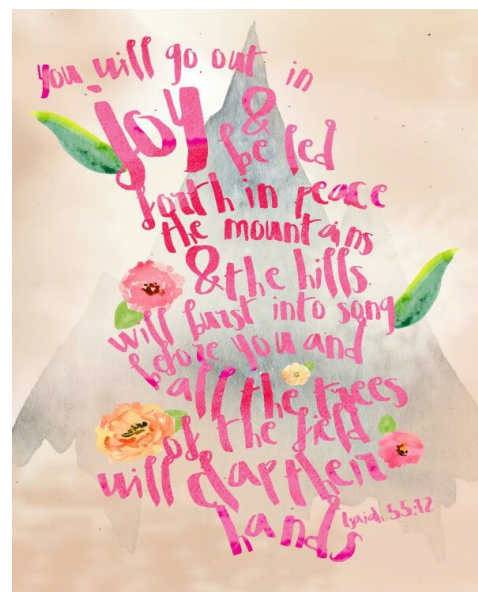 you will go out in
joy &
be led
forth in peace
the mountains
& the hills
will burst into song
before you and
all the trees
of the field
will clap their
hands
Isaiah 55:12